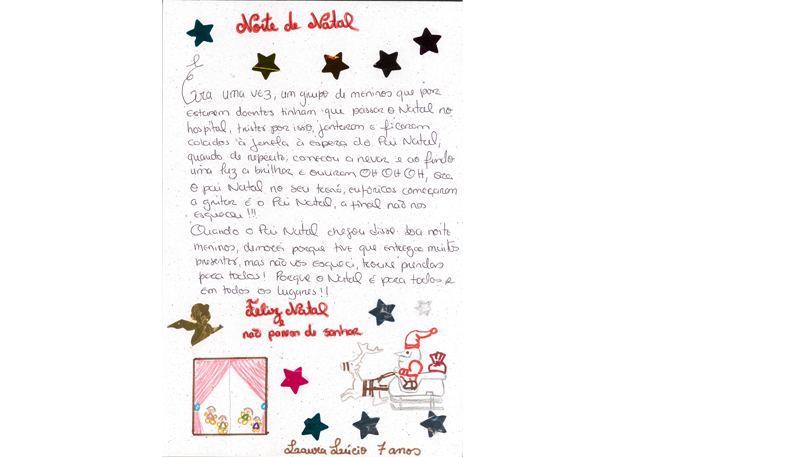 Noite de Natal
Era uma vez, um grupo de meninos que por
estarem doentes tinham que passar o Natal no
hospital, tristes por isso, jantaram e ficaram
colados à janela à espera do Pai Natal,
quando de repente, começou a nevar e ao fundo
uma luz a brilhar e ouviram OH OH OH, era
o pai Natal no seu trenó, eufóricos começaram
a gritar é o Pai Natal, afinal não nos
esqueceu!!!
Quando o Pai Natal chegou disse: boa noite
meninos, demorei porque tive que entregar muitos
presentes, mas não vos esqueci, trouxe prendas
para todos! Porque o Natal é para todos e
em todos os lugares!!
Feliz Natal
e
não parem de sonhar
Leonor Lúcio 7 anos